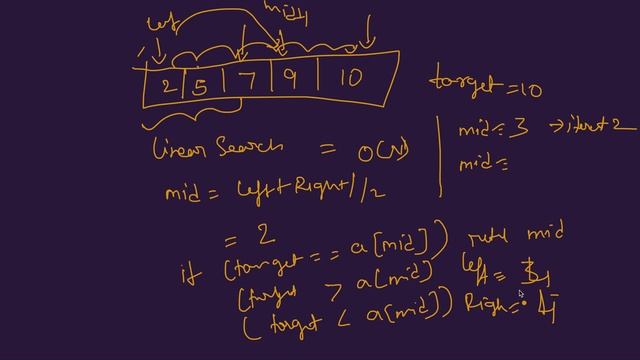 left mid+1
2 5 7 9 10
target = 10
mid = 3 → iterat 2
linear Search = O(N)
mid =
mid = left + Right // 2
= 2
if (target == a[mid]) retu mid
(target > a[mid]) left =
(target < a[mid]) Righ =